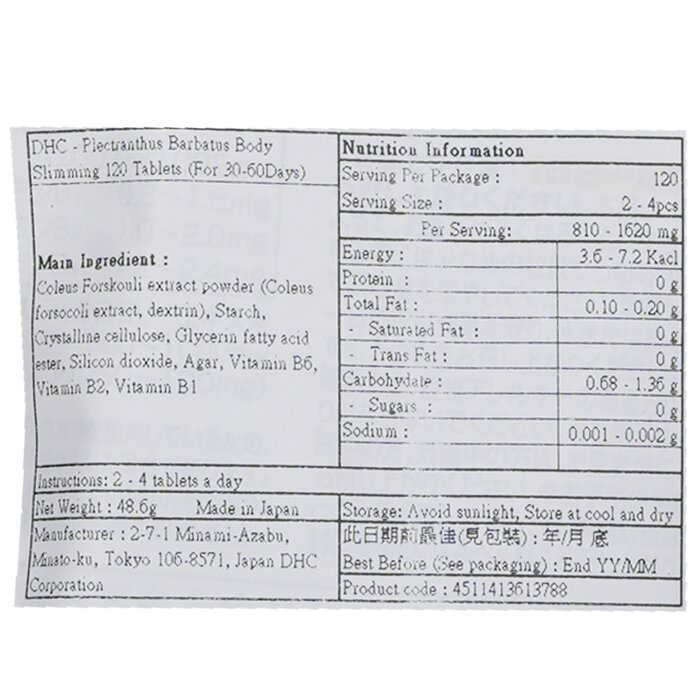 DHC - Plectranthus Barbatus Body
Slimming 120 Tablets (For 30-60Days)
Main Ingredient :
Coleus Forskouli extract powder (Coleus
forsocoli extract, dextrin), Starch,
Crystalline cellulose, Glycerin fatty acid
ester, Silicon dioxide, Agar, Vitamin B6,
Vitamin B2, Vitamin B1
Instructions: 2 - 4 tablets a day
Net Weight : 48.6g Made in Japan
Manufacturer : 2-7-1 Minami-Azabu,
Minato-ku, Tokyo 106-8571, Japan DHC
Corporation
Nutrition Information
Serving Per Package : 120
Serving Size : 2 - 4pcs
Per Serving: 810 - 1620 mg
Energy : 3.6 - 7.2 Kacl
Protein : 0 g
Total Fat : 0.10 - 0.20 g
- Saturated Fat : 0 g
- Trans Fat : 0 g
Carbohydate : 0.68 - 1.36 g
- Sugars : 0 g
Sodium : 0.001 - 0.002 g
Storage: Avoid sunlight, Store at cool and dry
此日期前最佳(見包裝) : 年/月 底
Best Before (See packaging) : End YY/MM
Product code : 4511413613788